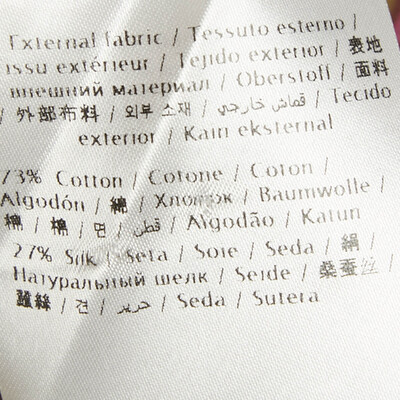 External fabric / Tessuto esterno /
issu extérieur / Tejido exterior / 表地
внешний материал / Oberstoff / 面料
/ 外部布料 / 외부 소재 / قماش خارجي / Tecido
exterior / Kain eksternal
73% Cotton / Cotone / Coton /
Algodón / 綿 / Хлопок / Baumwolle /
棉 / 棉 / 면 / قطن / Algodão / Katun
27% Silk / Seta / Soie / Seda / 絹 /
Натуральный шелк / Seide / 桑蚕丝 /
蠶絲 / 견 / حرير / Seda / Sutera